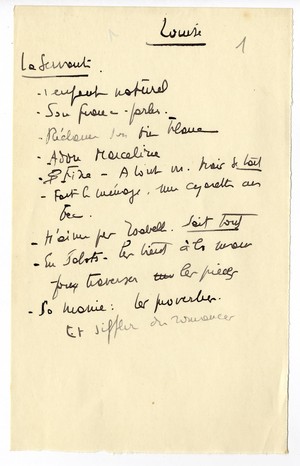 Louise
1
La Servante.
- 1 enfant naturel
- Son franc-parler.
- Réclame son vin blanc
- Adore Marceline
- Fixe - A tout m. Mais de tout
- Fait le ménage, une cigarette au
bec.
- N'aime pas Isabelle. Sait tout
- En sabots - les tient à la main
pour traverser les pièces
- Sa manie : les proverbes.
Et siffler des romances